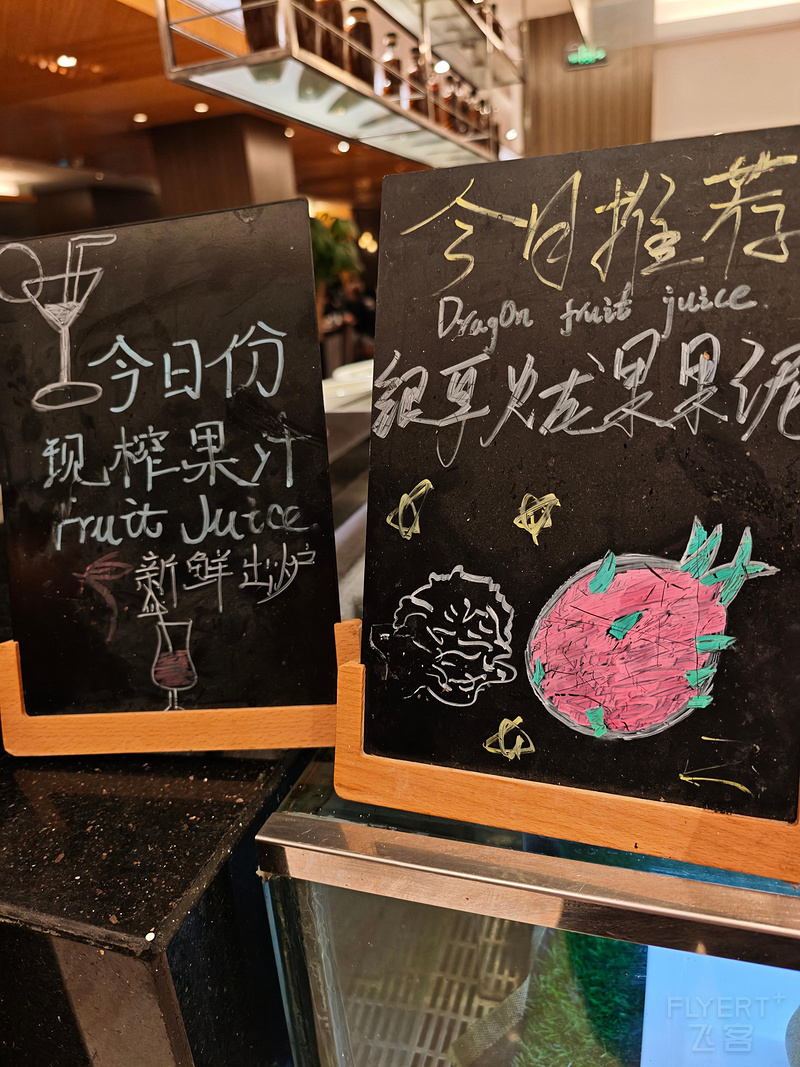 今日份
现榨果汁
Fruit Juice
新鲜出炉
今日推荐
Dragon fruit juice
银耳火龙果果泥
FLYERT+
飞客